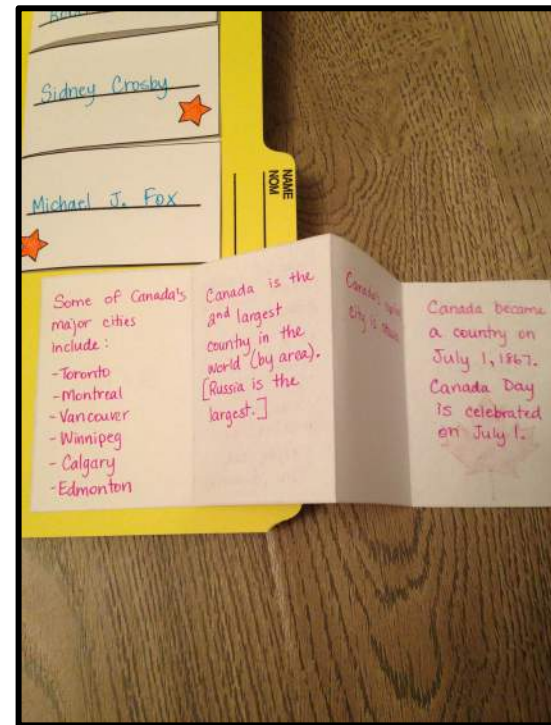 Sidney Crosby
Michael J. Fox
NAME
NOM
Some of Canada's
major cities
include:
-Toronto
-Montreal
-Vancouver
-Winnipeg
-Calgary
-Edmonton
Canada is the
2nd largest
country in the
world (by area).
[Russia is the
largest.]
Canada's
city is
Canada became
a country on
July 1, 1867.
Canada Day
is celebrated
on July 1.